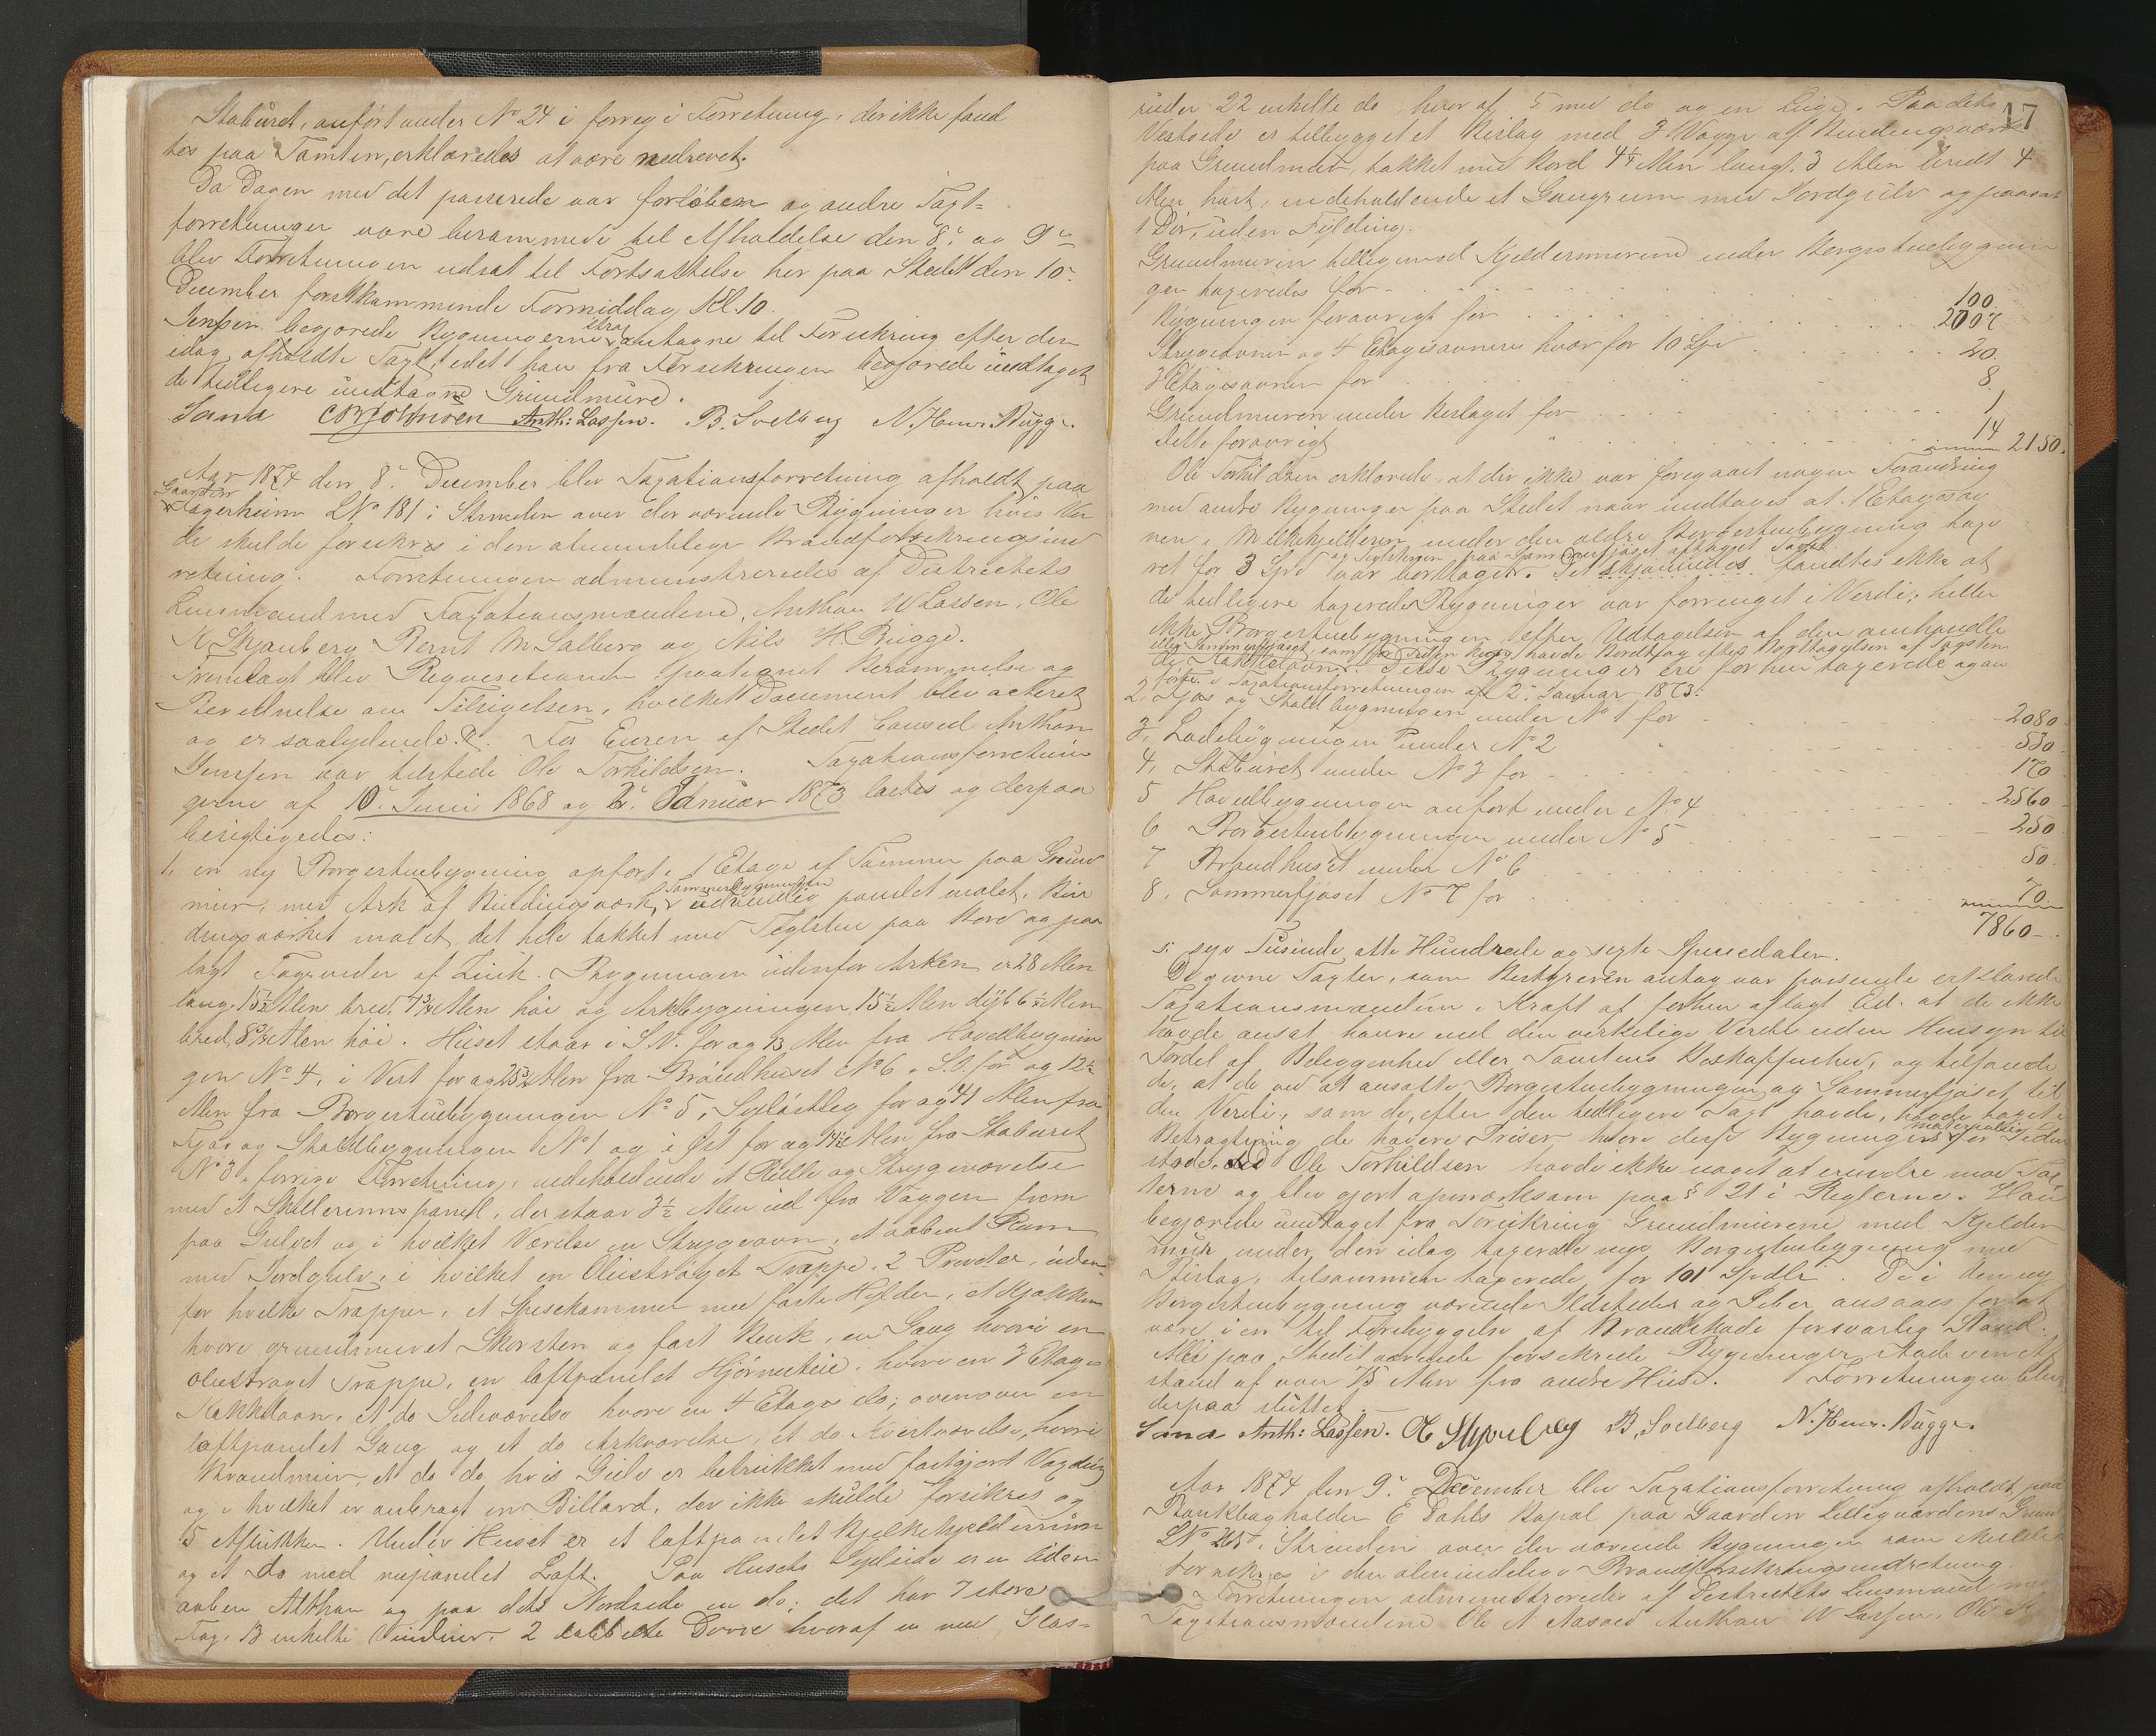 Staburet, anført under No 24 i forrige Forretning, der ikke fand
tes paa Tomten, erklæredes at være nedrevet.
Da Dagen med det passerede var forløben og andre Taxt-
forretninger vare berammede til Afholdelse den 8de og 9de
blev Forretningen udsat til Fortsættelse her paa Stedet den 10de
December førstkommende Formiddag Kl. 10.
Jenssen begjærede Bygningerne strax antagne til Forsikring efter den
idag afholdte Taxt, idet han fra Forsikringen begjærede undtaget
de tidligere undtagne Grundmure.
Sand Anth: Lassen. B. Solberg N. Henr. Bugge.
Aar 1874 den 8de December blev Taxationsforretning afholdt paa
Gaarden
Fagerheim LNo 181 i Strinden over der værende Bygninger hvis Vær
de skulde forsikres i den almindelige Brandforsikringsind
retning. Forretningen administreredes af Distriktets
Lensmand med Taxationsmændene, Anthon W Lassen, Ole
K Skjønberg Bernt M Salberg og Nils H. Bugge.
Fremlagt blev Reqvisitionen paategnet Berammelse og
Bevidnelse om Tilsigelsen, hvilket Document blev acteret
og er saalydende. For Eieren af Stedet Consul Anthon
Jenssen var tilstede Ole Torkildsen. Taxationsforretnin
gerne af 10de Juni 1868 og 2de Januar 1873 læstes og derpaa
berigtigedes:
1, en ny Borgestuebygning opført i 1 Etage af Tømmer paa Grund
mur, med Ark af Bindingsværk, Tømmerbygningen udvendig panelet malet, Bin
dingsværket malet, det hele tækket med Tegelsten paa Bord og paa
lagt Tagrender af Zink. Bygningen udenfor Arken er 28 Alen
lang, 15 1/2 Alen bred, 7 3/4 Alen høi og Arkbygningen, 15 1/2 Alen dyb 6 1/2 Alen
bred, 8 Alen høi. Huset staar i S.V. for og 13 Alen fra Hovedbygnin
gen No 4, i Vest for og 25 3/4 Alen fra Brændhuset No 6. S.O. for og 12 1/2
Alen fra Borgestuebygningen No 5, Sydøstlig for og 41 Alen fra
Fjøs og Staldbygningen No 1 og i Øst for og 14 1/2 Alen fra Staburet
No 3 i forrige Forretning, indeholdende et Rulle og Strygeværelse
med et Skillerumspanel, der staar 3 1/2 Alen ud fra Væggen frem
paa Gulvet og i hvilket Værelse en Strygeovn, et aabent Rum
med Jordgulv, i hvilket en Oliestrøget Trappe, 2 Privater, uden-
for hvilke Trapper, et Spisekammer med faste Hylder, et Kjøkken
hvori grundmuret Skorsten og fast Bænk, en Gang hvori en
oliestrøget Trappe, en loftpanelet Hjørnestue, hvori en 3 Etages
Kakkelovn, et do Sideværelse hvori en 4 Etages do; ovenover en
loftpanelet Gang og et do Arkværelse, et do Kvistværelse, hvori
Brandmur, et do do, hvis Gulv er betrukket med fastgjort Voxdug
og i hvilket er anbragt en Billard, der ikke skulde forsikres og
5 Aflukker. Under Huset er et loftpanelet Melkekjelderrum
og et do med upanelet Loft. Paa Husets Sydside er en liden
aaben Althan og paa dets Nordside en do; det har 7 store
Fag, 13 enkelte Vinduer, 2 dobbelte Dørre hvoraf en med Glas-
17
ruder 22 enkelte do, hvoraf 5 med do og en Luge. Paa dets
Vestside er tilbygget et Bislag med 3 Vægge af Bindingsværk
paa Grundmur, tækket med Bord 4 1/2 Alen langt. 3 Alen bredt 4
Alen høit, indeholdende et Gangrum med Jordgulv og paasat
1 Dør, uden Fylding.
Grundmuren tilligemed Kjeldermurene under Borgestuebygnin
gen taxeredes for 100.
Bygningen forøvrigt for 2007
Strygeovnen og 4 Etagesovnene hver for 10 Spd 20.
3 Etagesovnen for 8
Grundmuren under Bislaget for 1
dette forøvrigt " 14
2150.
Ole Torkildsen erklærede, at der ikke var foregaaet nogen Forandring
med andre Bygninger paa Stedet naar undtages at 1 Etagesov
nen i Melkekjelderen under den ældre Borgestuebygning taxe
ret for 3 Spd og Teglstenen paa Sommerfjøset aftaget
var borttagen. Det skjønnedes fandtes ikke at
de tidligere taxerede Bygninger var forringet i Værdi; heller
ikke Borgestuebygningen efter Udtagelsen af den omhandlede
eller Sommerfjøset, som før under havde Bordtag efter Borttagelsen af Tagsten
de Kakkelovn. Disse Bygninger ere forhen taxerede og an
førte i Taxationsforretningen af 2de Januar 1873:
2, Fjøs og Staldbygningen under No 1 for 2080
3, Ladebygningen under No 2 " 530
4, Staburet under No 3 for 170
5 Hovedbygningen anført under No 4 2560
6 Borgestuebygningen under No 5 250
7 Brændhuset under No 6 50
8, Sommerfjøset No 7 for 70
7860
syv Tusinde otte Hundrede og sexti Speciedaler.
De givne Taxter, som Bestyreren antog var passende erklærede
Taxationsmændene i Kraft af forhen aflagt Ed. at de ikke
havde ansat høiere end den virkelige Værdi uden Hensyn til
Fordel af Beliggenhed eller Tomtens Beskaffenhed, og tilføiede
de, at de ved at ansætte Borgestuebygningen og Sommerfjøset til
den Værdi, som de, efter den tidligere Taxt havde, havde taget i
Betragtning de høiere Priser, hvori disse Bygningers materialier for Tiden
stode. Ole Torkildsen havde ikke noget at erindre mod Tax
terne og blev gjort opmærksom paa § 21 i Reglerne. Han
begjærede undtaget fra Forsikring Grundmurene med Kjelder
mur under den idag taxerede nye Borgestuebygning med
Bislag, tilsammen taxerede for 101 Spdlr. De i den ny
Borgestuebygning værende Ildsteder og Piber ansaaes for at
være i en til Forebyggelse af Brandskade forsvarlig Stand.
Alle paa Stedet værende forsikrede Bygninger stode i en Af
stand af over 75 Alen fra andre Huse. Forretningen blev
derpaa sluttet.
Sand Anth: Lassen. O K Skjønberg B. Solberg N. Henr. Bugge.
Aar 1874 den 9de December blev Taxationsforretning afholdt paa
Bankbogholder E Dahls Bopæl paa Gaarden Lillegaardens Grund
LNo i Strinden over der værende Bygninger som skulde
forsikres i den almindelige Brandforsikringsindretning.
Forretningen administreredes af Distriktets Lensmand med
Taxationsmændene Ole A Aasved Anthon W Lassen, Ole